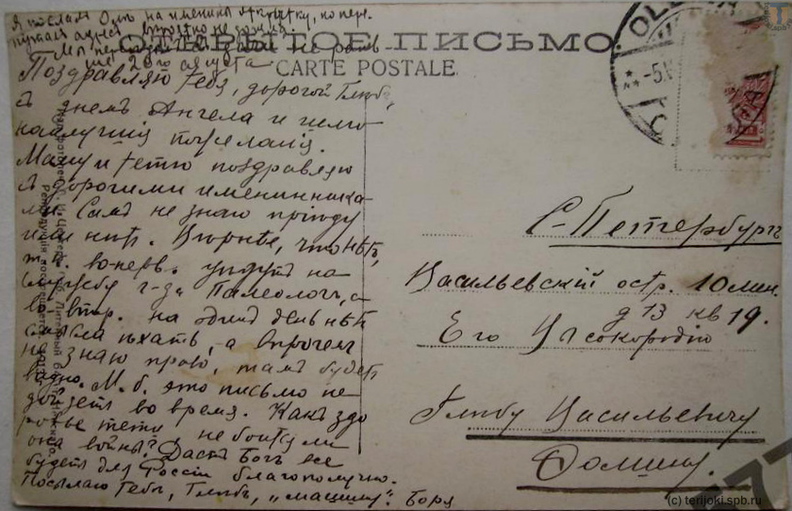 Я послалъ Олѣ на именины открытку, но пере-
путалъ адресъ
Мы переѣхали
20го августа
ОТКРЫТОЕ ПИСЬМО.
CARTE POSTALE.
Поздравляю тебя, дорогой Глѣбъ,
съ днемъ Ангела и шлю
наилучшія пожеланія.
Маму и тетю поздравляю
съ дорогими именинника-
ми. Самъ не знаю пріѣду
или нѣтъ. Вѣрнѣе, что нѣтъ,
т.к. во-перв.
службу г-за Палеологъ, а
во втор. на одинъ день нѣтъ
смысла ѣхать, а впрочемъ
не знаю право, тамъ будетъ
видно. М. б. это письмо не
дойдетъ во время. Какъ здо-
ровье тети не боится ли
она войны? Дастъ Богъ все
будетъ для Россіи благополучно.
Посылаю тебѣ, Глѣбъ, „машину“. Боря
С-Петербургъ
Васильевскій остр. 10 лин.
д 13 кв 19.
Его Высокородію
Глѣбу Васильевичу
(c) terijoki.spb.ru